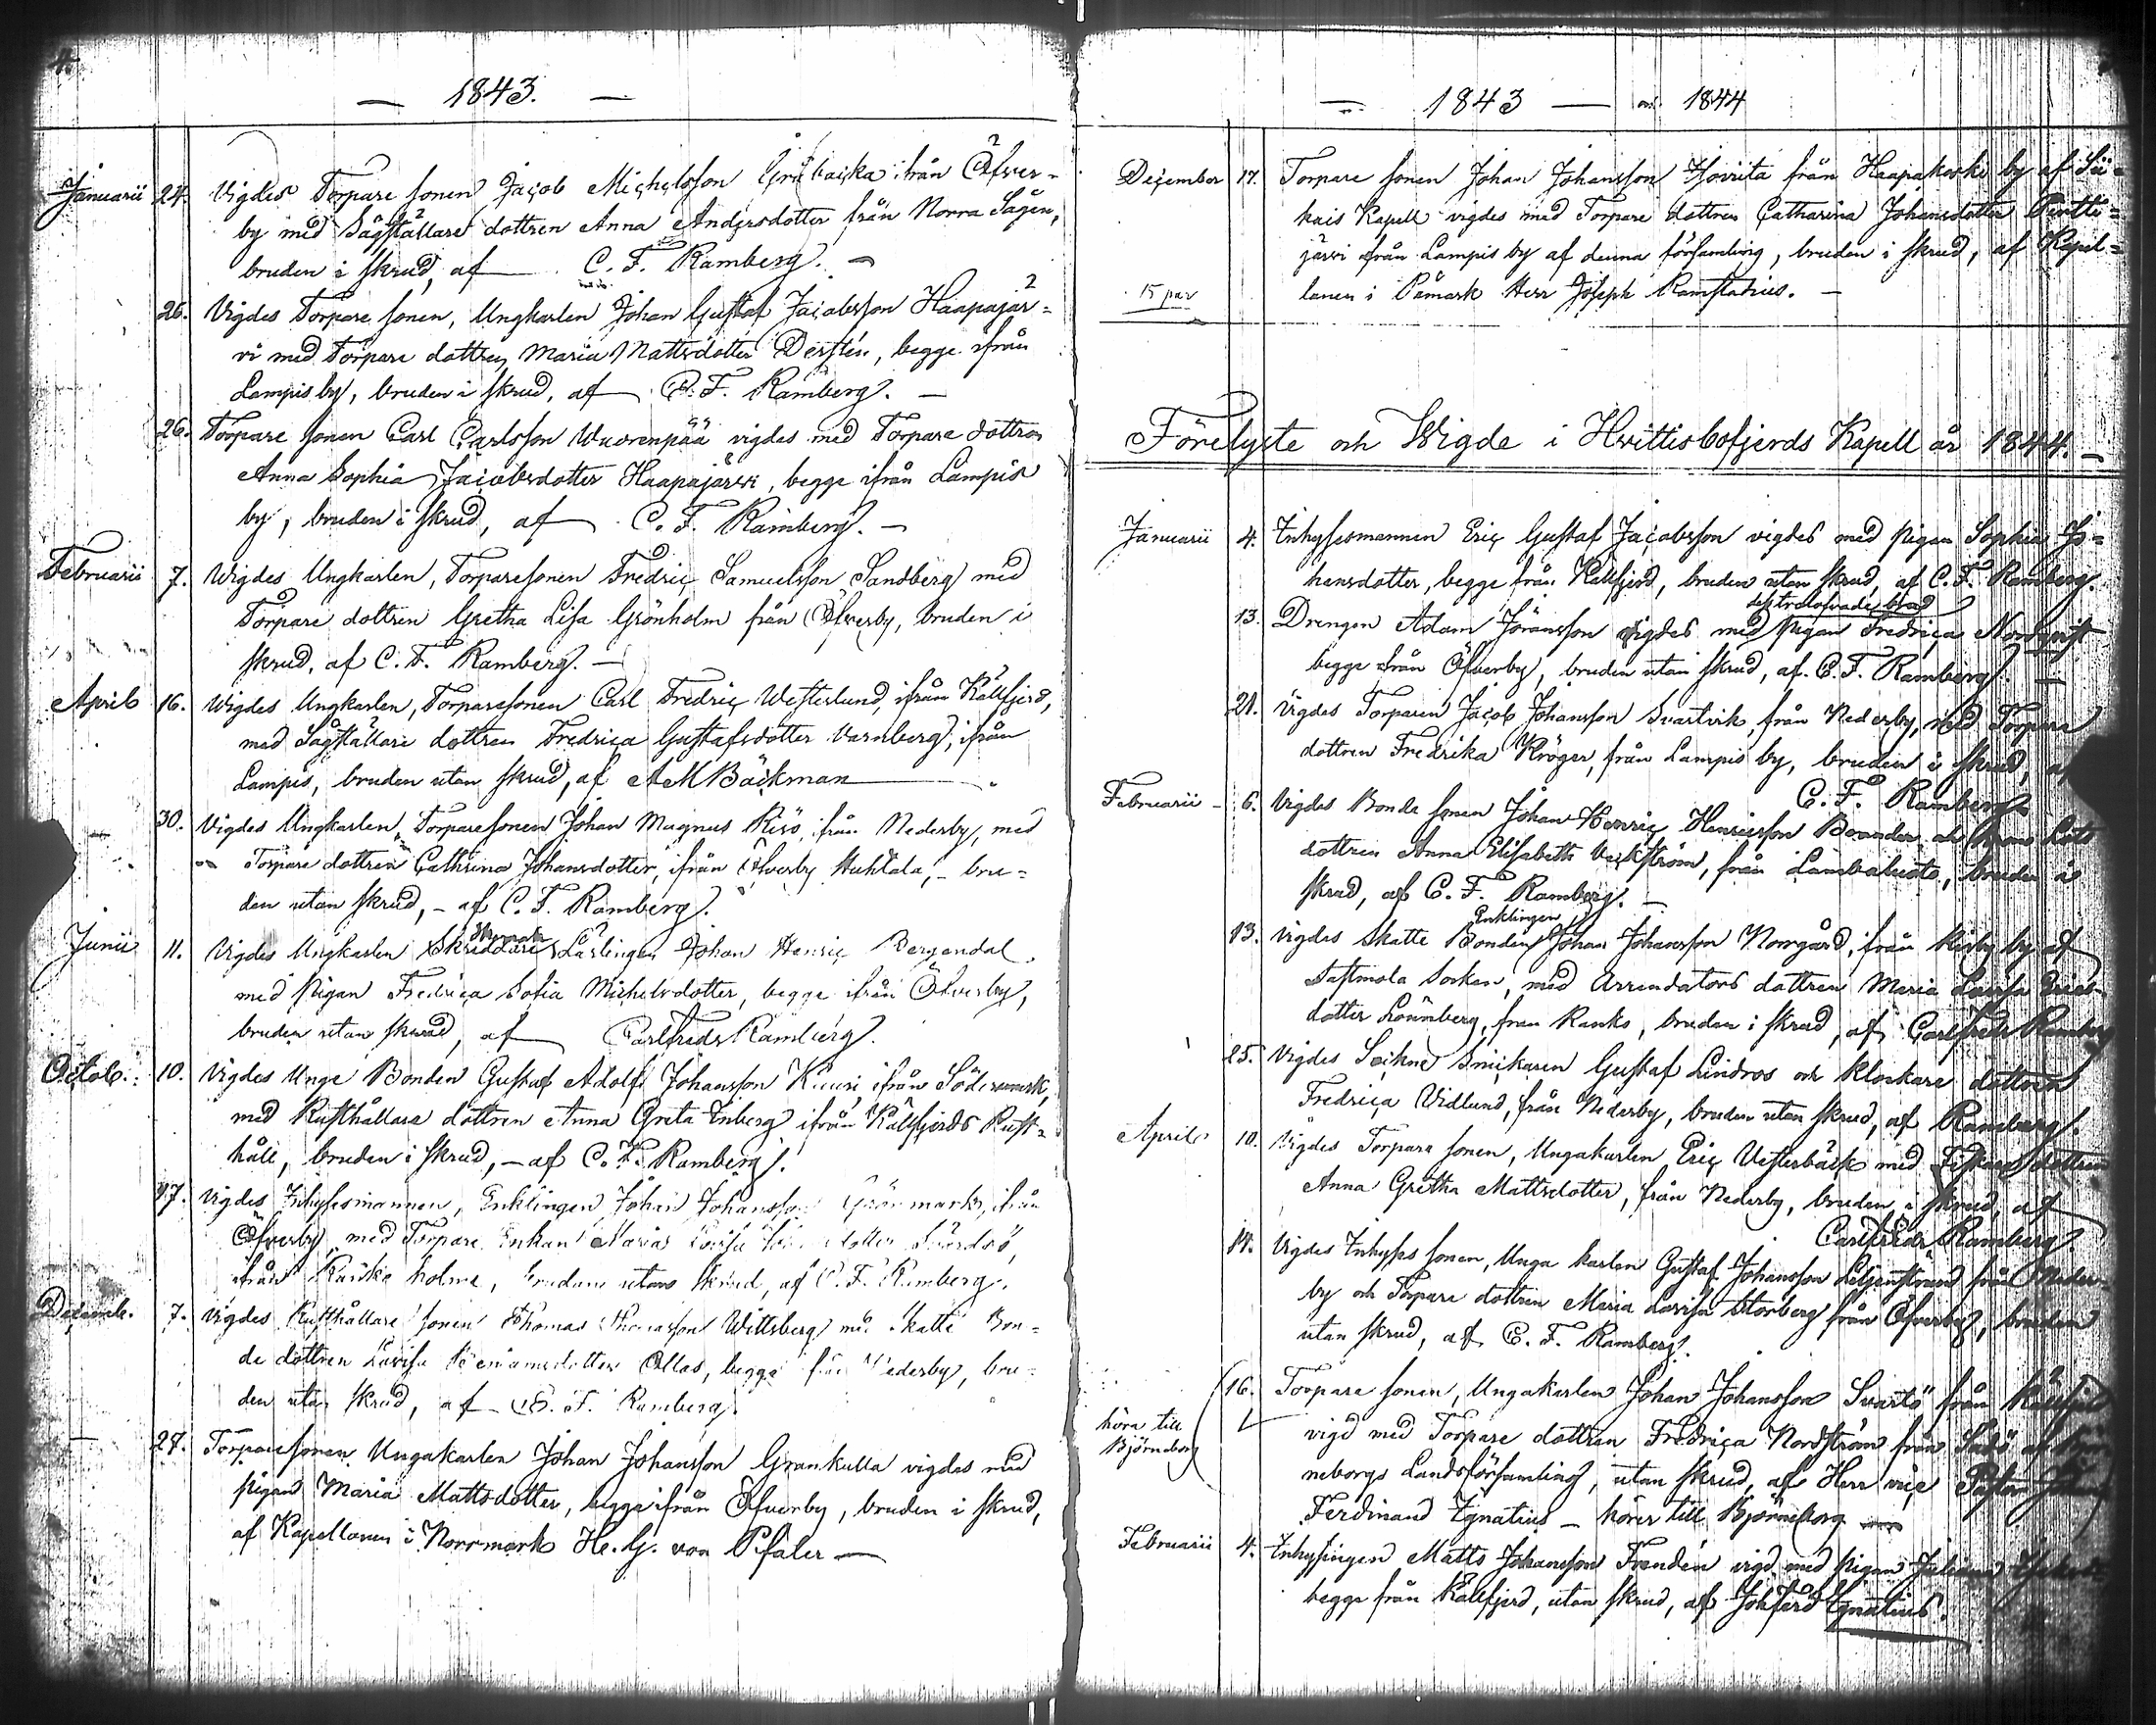 — 1843. —
Januarii 24. Vigdes Torpare sonen Jacob Michelsson Gråbacka ifrån Öfver-
by med Sågställare dottren Anna Andersdotter från Norra Sågen,
bruden i skrud, af C. F. Ramberg. —
26. Vigdes Torpare sonen, Ungkarlen Johan Gustaf Jacobsson Haapajär-
vi med Torpare dottren Maria Mattsdotter Dersten, begge ifrån
Lampis by, bruden i skrud, af C. F. Ramberg. —
26. Torpare sonen Carl Carlsson Wuorenpää vigdes med Torpare dottren
Anna Sophia Jacobsdotter Haapajärvi, begge ifrån Lampis
by, bruden i skrud, af C. F. Ramberg. —
Februarii 7. Wigdes Ungkarlen, Torparesonen Fredric Samuelsson Sandberg med
Torpare dottren Gretha Lisa Grönholm från Öfverby, bruden i
skrud, af C. F. Ramberg. —
April 16. Wigdes Ungkarlen, Torparesonen Carl Fredric Westerlund, ifrån Källfjerd,
med Sågställare dottren Fredrica Gustafsdotter Varnberg, ifrån
Lampis, bruden utan skrud, af A M Bäckman
30. Vigdes Ungkarlen, Torparesonen Johan Magnus Risö, ifrån Nederby, med
Torpare dottren Cathrina Johansdotter, ifrån Öfverby Huhtala, - bru-
den utan skrud, - af C. F. Ramberg.
Junii 11. Vigdes Ungkarlen Skräddare Lärlingen Johan Henric Bergendal
med pigan Fredrica Sofia Michelsdotter, begge ifrån Öfverby,
bruden utan skrud, af Carl Fredr Ramberg.
Octob: 10. Vigdes Unge Bonden Gustaf Adolf Johansson Kuuri, ifrån Södermark,
med Rusthållare dottren Anna Greta Enberg ifrån Källfjerds Rust-
håll, bruden i skrud, - af C. F. Ramberg.
17. Vigdes Inhysesmannen, Enklingen Johan Johansson Grönmark, ifrån
Öfverby, med Torpare Enkan Maria Lovisa dotter Svärdsö,
ifrån holme, bruden utan skrud, af C. F. Ramberg.
Decemb. 7. Vigdes Rusthållare sonen Thomas Thomasson Wittsberg med Skatte Bon-
de dottren Lovisa Benjamsdotter Ollas, begge från Nederby, bru-
den utan skrud, af C. F. Ramberg.
27. Torparesonen Ungakarlen Johan Johansson Grankulla vigdes med
pigan Maria Mattsdotter, begge ifrån Öfverby, bruden i skrud,
af Kapellanen i Norrmark He. G. von Pfaler —
— 1843 — och 1844
December 17. Torpare sonen Johan Johansson Hovrita från Haapakoski by af Sii-
kais Kapell vigdes med Torpare dottren Catharina Johansdotter Pentti-
järvi från Lampis by af denna församling, bruden i skrud, af Kapel-
15 par lanen i Påmark Herr Joseph Ramstadius. —
Förelyste och Wigde i Hvittisbofjerds Kapell år 1844. —
Januarii 4. Inhysesmannen Eric Gustaf Jacobsson vigdes med pigan Sophia Jo-
hansdotter, begge från Källfjerd, bruden utan skrud, af C. F. Ramberg.
13. Drengen Adam Jöransson vigdes med pigan Fredrica Nordqvist
begge från Öfverby, bruden utan skrud, af C. F. Ramberg. —
21. Vigdes Torparen Jacob Johansson Svartvik, från Nederby, med Torpare
dottren Fredrika Kröger, från Lampis by, bruden i skrud, af
C. F. Ramberg
Februarii 6. Vigdes Bonde sonen Johan Henric Henricsson
dottren Anna Elisabeth Veckström, från Lambaluoto, bruden i
skrud, af C. F. Ramberg. —
13. Vigdes Skatte Bonden Enklingen Johan Johansson Norrgård, ifrån Kirby by af
Sastmola Socken, med Arrendators dottren Maria Lovisa Erics-
dotter Lönnberg, från Ranko, bruden i skrud, af Carl Fredr Ramberg
25. Vigdes Sockne Snickaren Gustaf Lindros och Klockare dottren
Fredrica Vidlund, från Nederby, bruden utan skrud, af Ramberg.
April 10. Vigdes Torpare sonen, Ungakarlen Eric Vesterbäck med Fiskare dottren
Anna Gretha Mattsdotter, från Nederby, bruden i skrud, af
Carl Fredr Ramberg
14. Vigdes Inhyses sonen, Unga karlen Gustaf Johansson Liljenstrand från Neder-
by och Torpare dottren Maria Lovisa Storberg från Öfverby, bruden
utan skrud, af C. F. Ramberg.
16. Torpare sonen, Ungakarlen Johan Johansson Svartö från Källfjerd
höra till Björneborg vigd med Torpare dottren Fredrica Nordström från af Björ-
neborgs Landsförsamling, utan skrud, af Herr vice Pastorn Johan
Ferdinand Ignatius — hörer till Björneborg —
Februarii 4. Inhysingen Matts Johansson Frendén vigd med pigan Juliana
begge från Källfjerd, utan skrud, af Joh Ferd Ignatius.